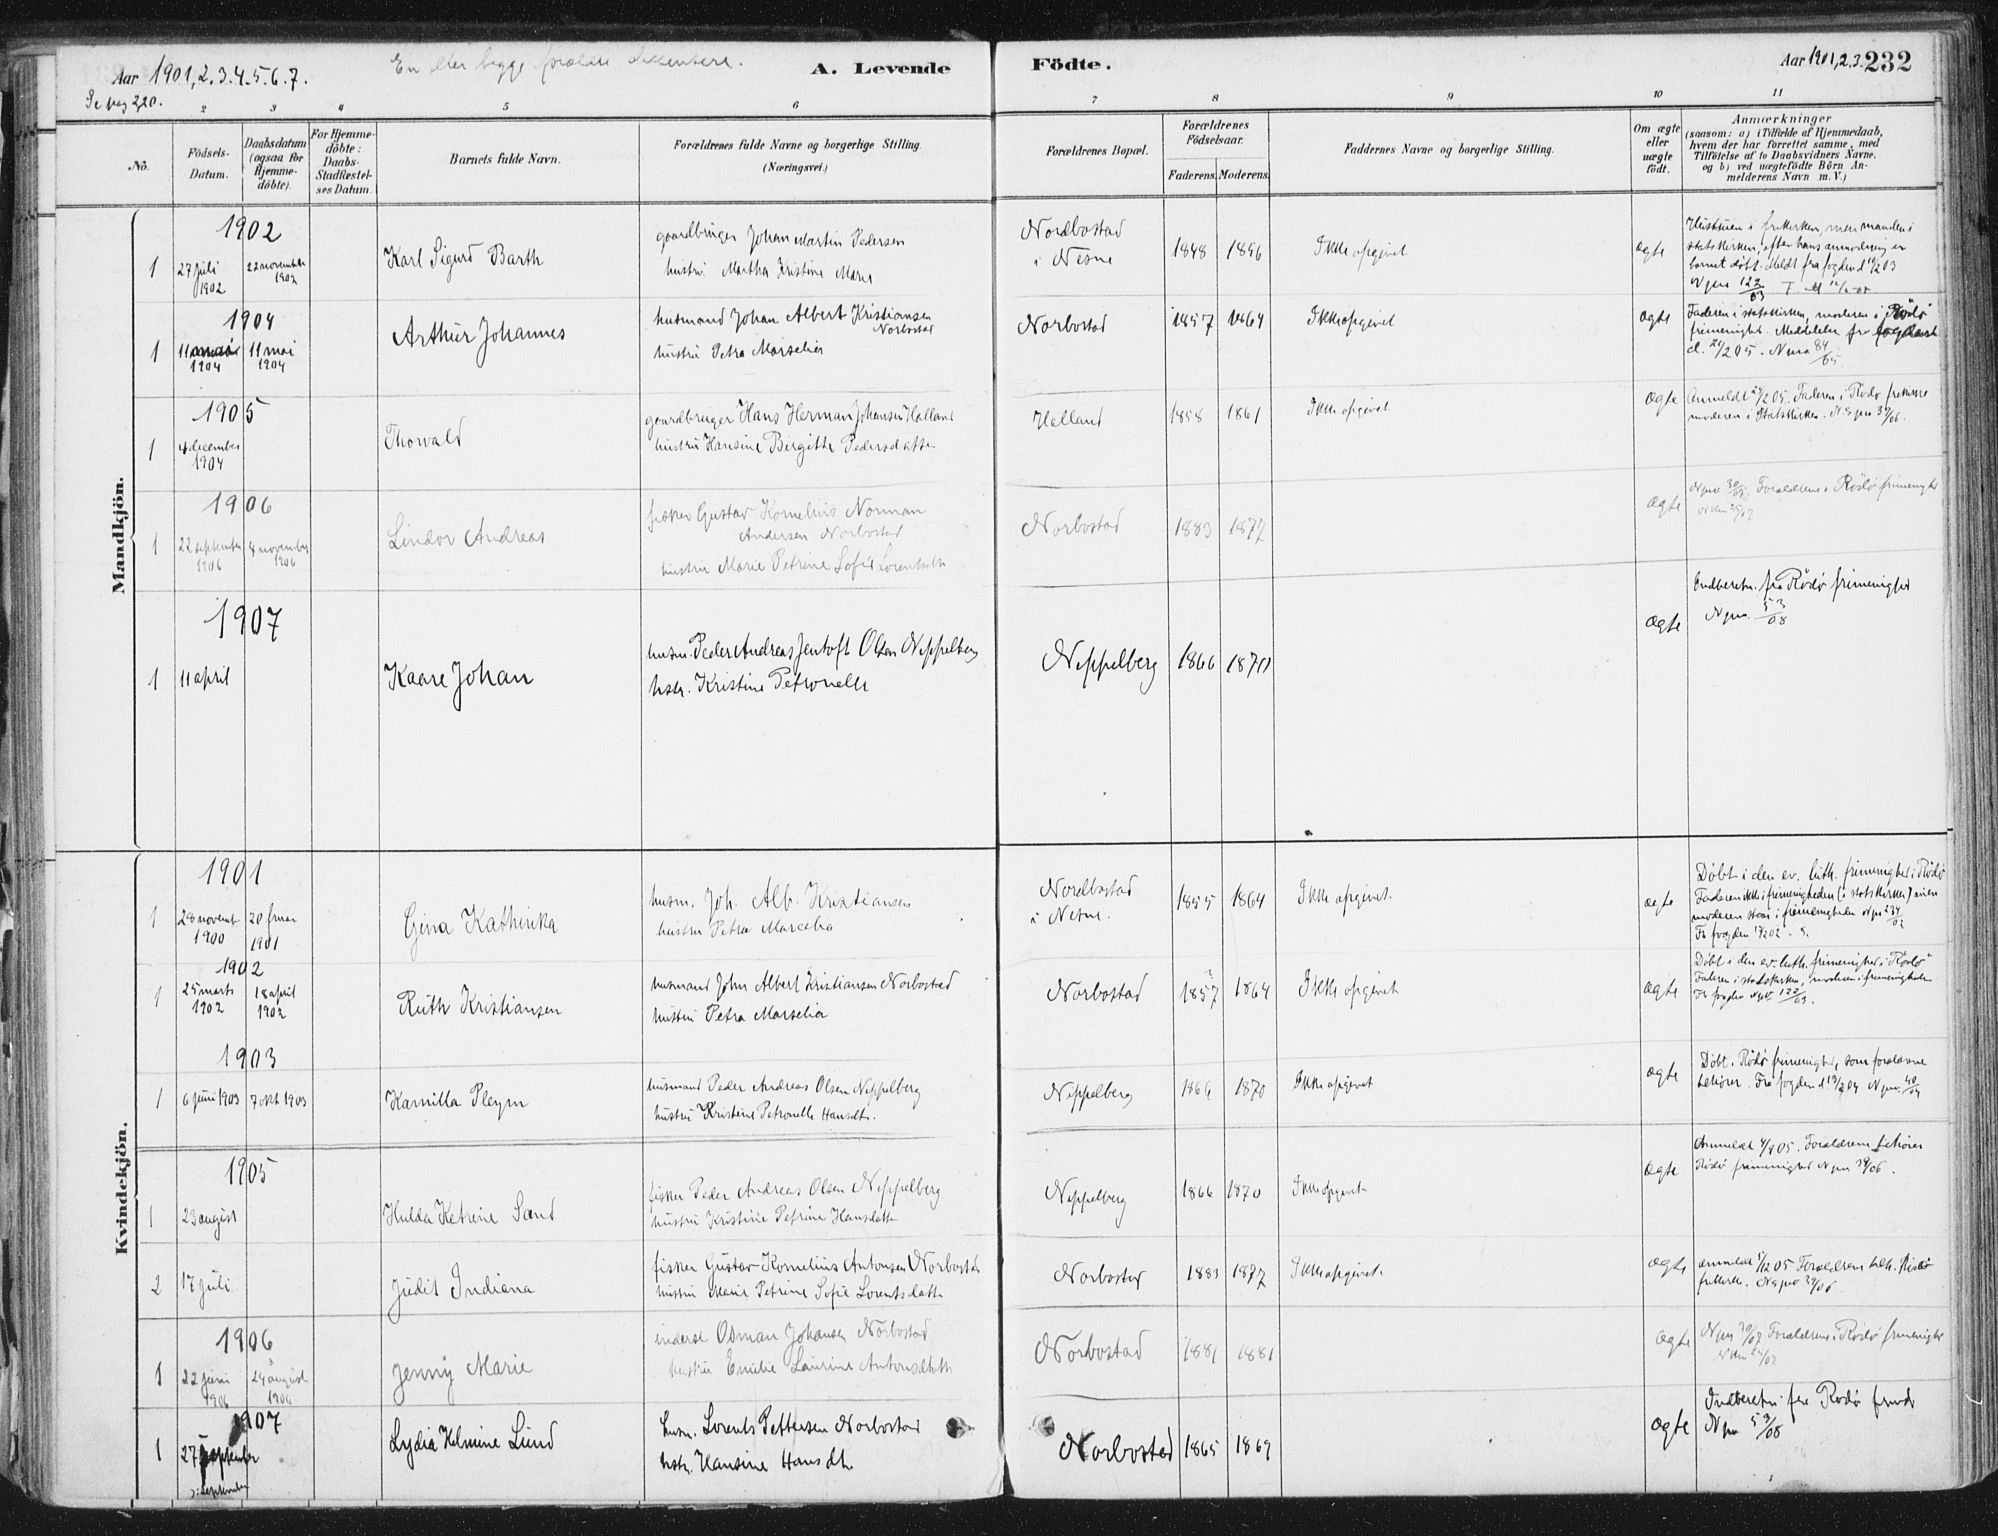 Aar 1901,2.3.4.5.6.7.
En eller begge forældre dissentere.
A. Levende
Födte.
Aar 1901,2,3. 232
Se pag 220.
2 3 4 5 6 7 8 9 10 11
No.
Födsels-Datum.
Daabsdatum (ogsaa for Hjemme-döbte).
For Hjemme-döbte: Daabs-Stadfæstel-ses Datum.
Barnets fulde Navn.
Forældrenes fulde Navne og borgerlige Stilling.
(Næringsvei.)
Forældrenes Bopæl.
Forældrenes Födselsaar.
Faderens. Moderens.
Faddernes Navne og borgerlige Stilling.
Om ægte eller uægte födt.
Anmærkninger
(saasom: a) i Tilfælde af Hjemmedaab,
hvem der har forrettet samme, med
Tilföielse af to Daabsvidners Navne,
og b) ved uægtefödte Börn An-
melderens Navn m. V.)
Mandkjön.
1902
1 27 juli 1902 22 november 1902
Karl Sigurd Barth
gaardbruger Johan Martin Pedersen
hustru Martha Kristine Marie
Nordbostad
i Nesne
1848 1856
Ikke opgivet
ægte
Hustruen i frikirken, men manden i
statskirken, efter hans anmodning er
barnet døbt. Meldt fra fogden
1904
1 11 1904 11 mai 1904
Arthur Johannes
husmand Johan Albert Kristiansen
Norbostad
hustru Petra Marselia
Norbostad
1857 1864
Ikke opgivet
ægte
Faderen i statskirken, moderen i Rödö
frimenighet. Meddelelse fra
1905
1 4 december 1904
Thorvald
gaardbruger Hans Herman Johansen Halland
hustru Hansine Birgitte Pedersdatter
Halland
1858 1861
Ikke opgivet
ægte
Anmeldt 2/2 05. Faderen i Rödø
moderen i Statskirken.
1906
1 22 september 1906 4 november 1906
Lindor Andreas
fisker Gustav Kornelius Norman
Andersen Norbostad
hustru Marie Petrine Sofie Lorentsdtr
Norbostad
1883 1877
ægte
Forældrene i Rödø frimenighet
1907
1 11 april
Kaare Johan
husm. Peder Andreas Jentoft Olsen Neppelberg
hstr. Kristine Petronelle
Neppelberg
1866 1870
ægte
Indberetn. fra Rödø frimenighet
N pro. 53/08
Kvindekjön.
1901
1 28 novemb 1900 1901
Gina Kathinka
husm. Joh. Alb. Kristiansen
hustru Petra Marcelia
Nordbostad
i Nesne.
1855 1864
Ikke opgivet
ægte
Døbt i den ev. luth. frimenighed i Rödø
Faderen ikke i frimenigheden (i statskirken) men
moderen staar i frimenigheden
1902
1 25 marts 1902 18 april 1902
Ruth Kristiansen
husmand John Albert Kristiansen Norbostad
hustru Petra Marselia
Norbostad
1857 1864
Ikke opgivet
ægte
Døbt i den ev. luth. frimenighed i Rödø
Faderen i statskirken, moderen i frimenigheden
Fr fogden 122/03.
1903
1 6 juni 1903 7 okt 1903
Kamilla Pleym
husmand Peder Andreas Olsen Neppelberg
hustru Kristine Petronelle Hansdtr.
Neppelberg
1866 1870
Ikke opgivet
ægte
Døbt i Rödø frimenighet, som forældrene
tehører. Fra fogden
1905
1 23 august
Hulda Katrine Sand
fisker Peder Andreas Olsen Neppelberg
hustru Kristine Petrine Hansdatter
Neppelberg
1866 1870
Ikke opgivet
ægte
Anmeldt 4/9 05. Forældrene tehører
Rödø frimenighet
2 17 juli
Judit Indiana
fisker Gustav Kornelius Antonsen Norbostad
hustru Marie Petrine Sofie Lorentsdatter
Norbostad
1883 1877
Ikke opgivet
ægte
anmeldt Forældrene Rödø
1906
1 22 juni 1906 24 august 1906
Jenny Marie
inderst Osman Johansen Norbostad
hustru Emelie Laurine Antonsdatter
Norbostad
1881 1881
ægte
Forældrene i Rödø frimenighet
1907
1 27 september
ɔ: september
Lydia Helmine Lund
husm. Lorents Pettersen Norbostad
hstr. Hansine Hansdtr
Norbostad
1865 1869
ægte
Indberetn fra Rödø
N pro 53/08